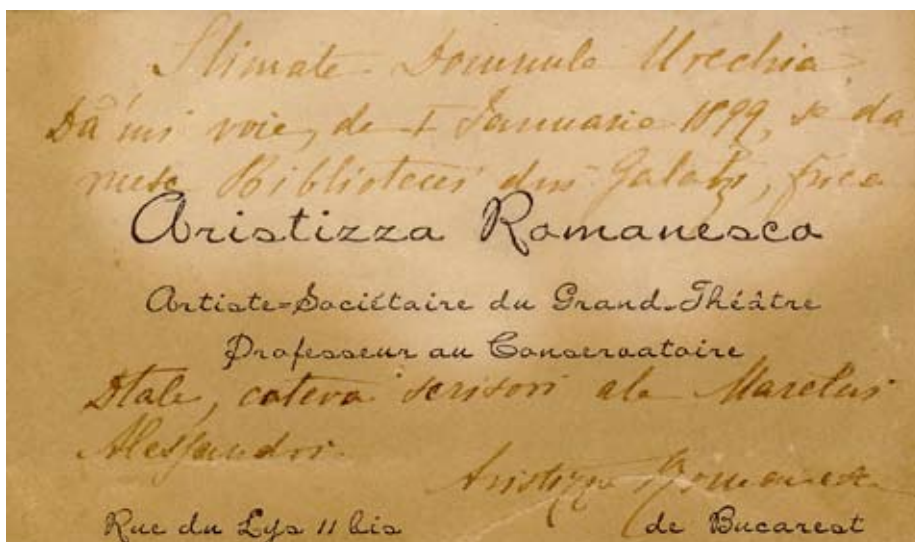 Stimate Domnule Urechia
Dă'mi voie, de 1 Ianuarie 1899, se da
resc Bibliotecei din Galatz,
Aristizza Romanesco
Artiste=Sociétaire du Grand-Théâtre
Professeur au Conservatoire
Dtale, cateva scrisori ale Marelui
Alessandri.
Aristizza Romanescu
Rue du Lys 11 bis de Bucarest